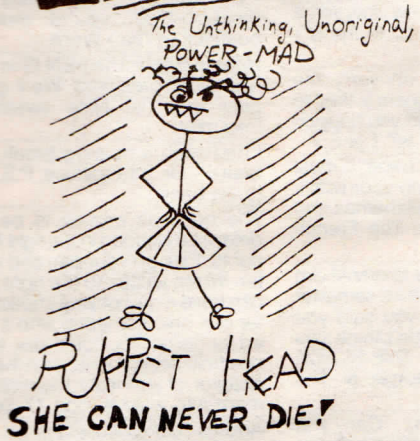 The Unthinking, Unoriginal,
POWER-MAD
PUPPET HEAD
SHE CAN NEVER DIE!